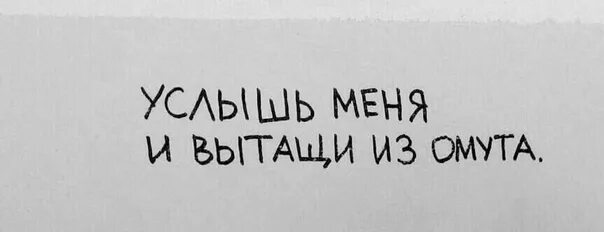 УСЛЫШЬ МЕНЯ
И ВЫТАЩИ ИЗ ОМУТА.